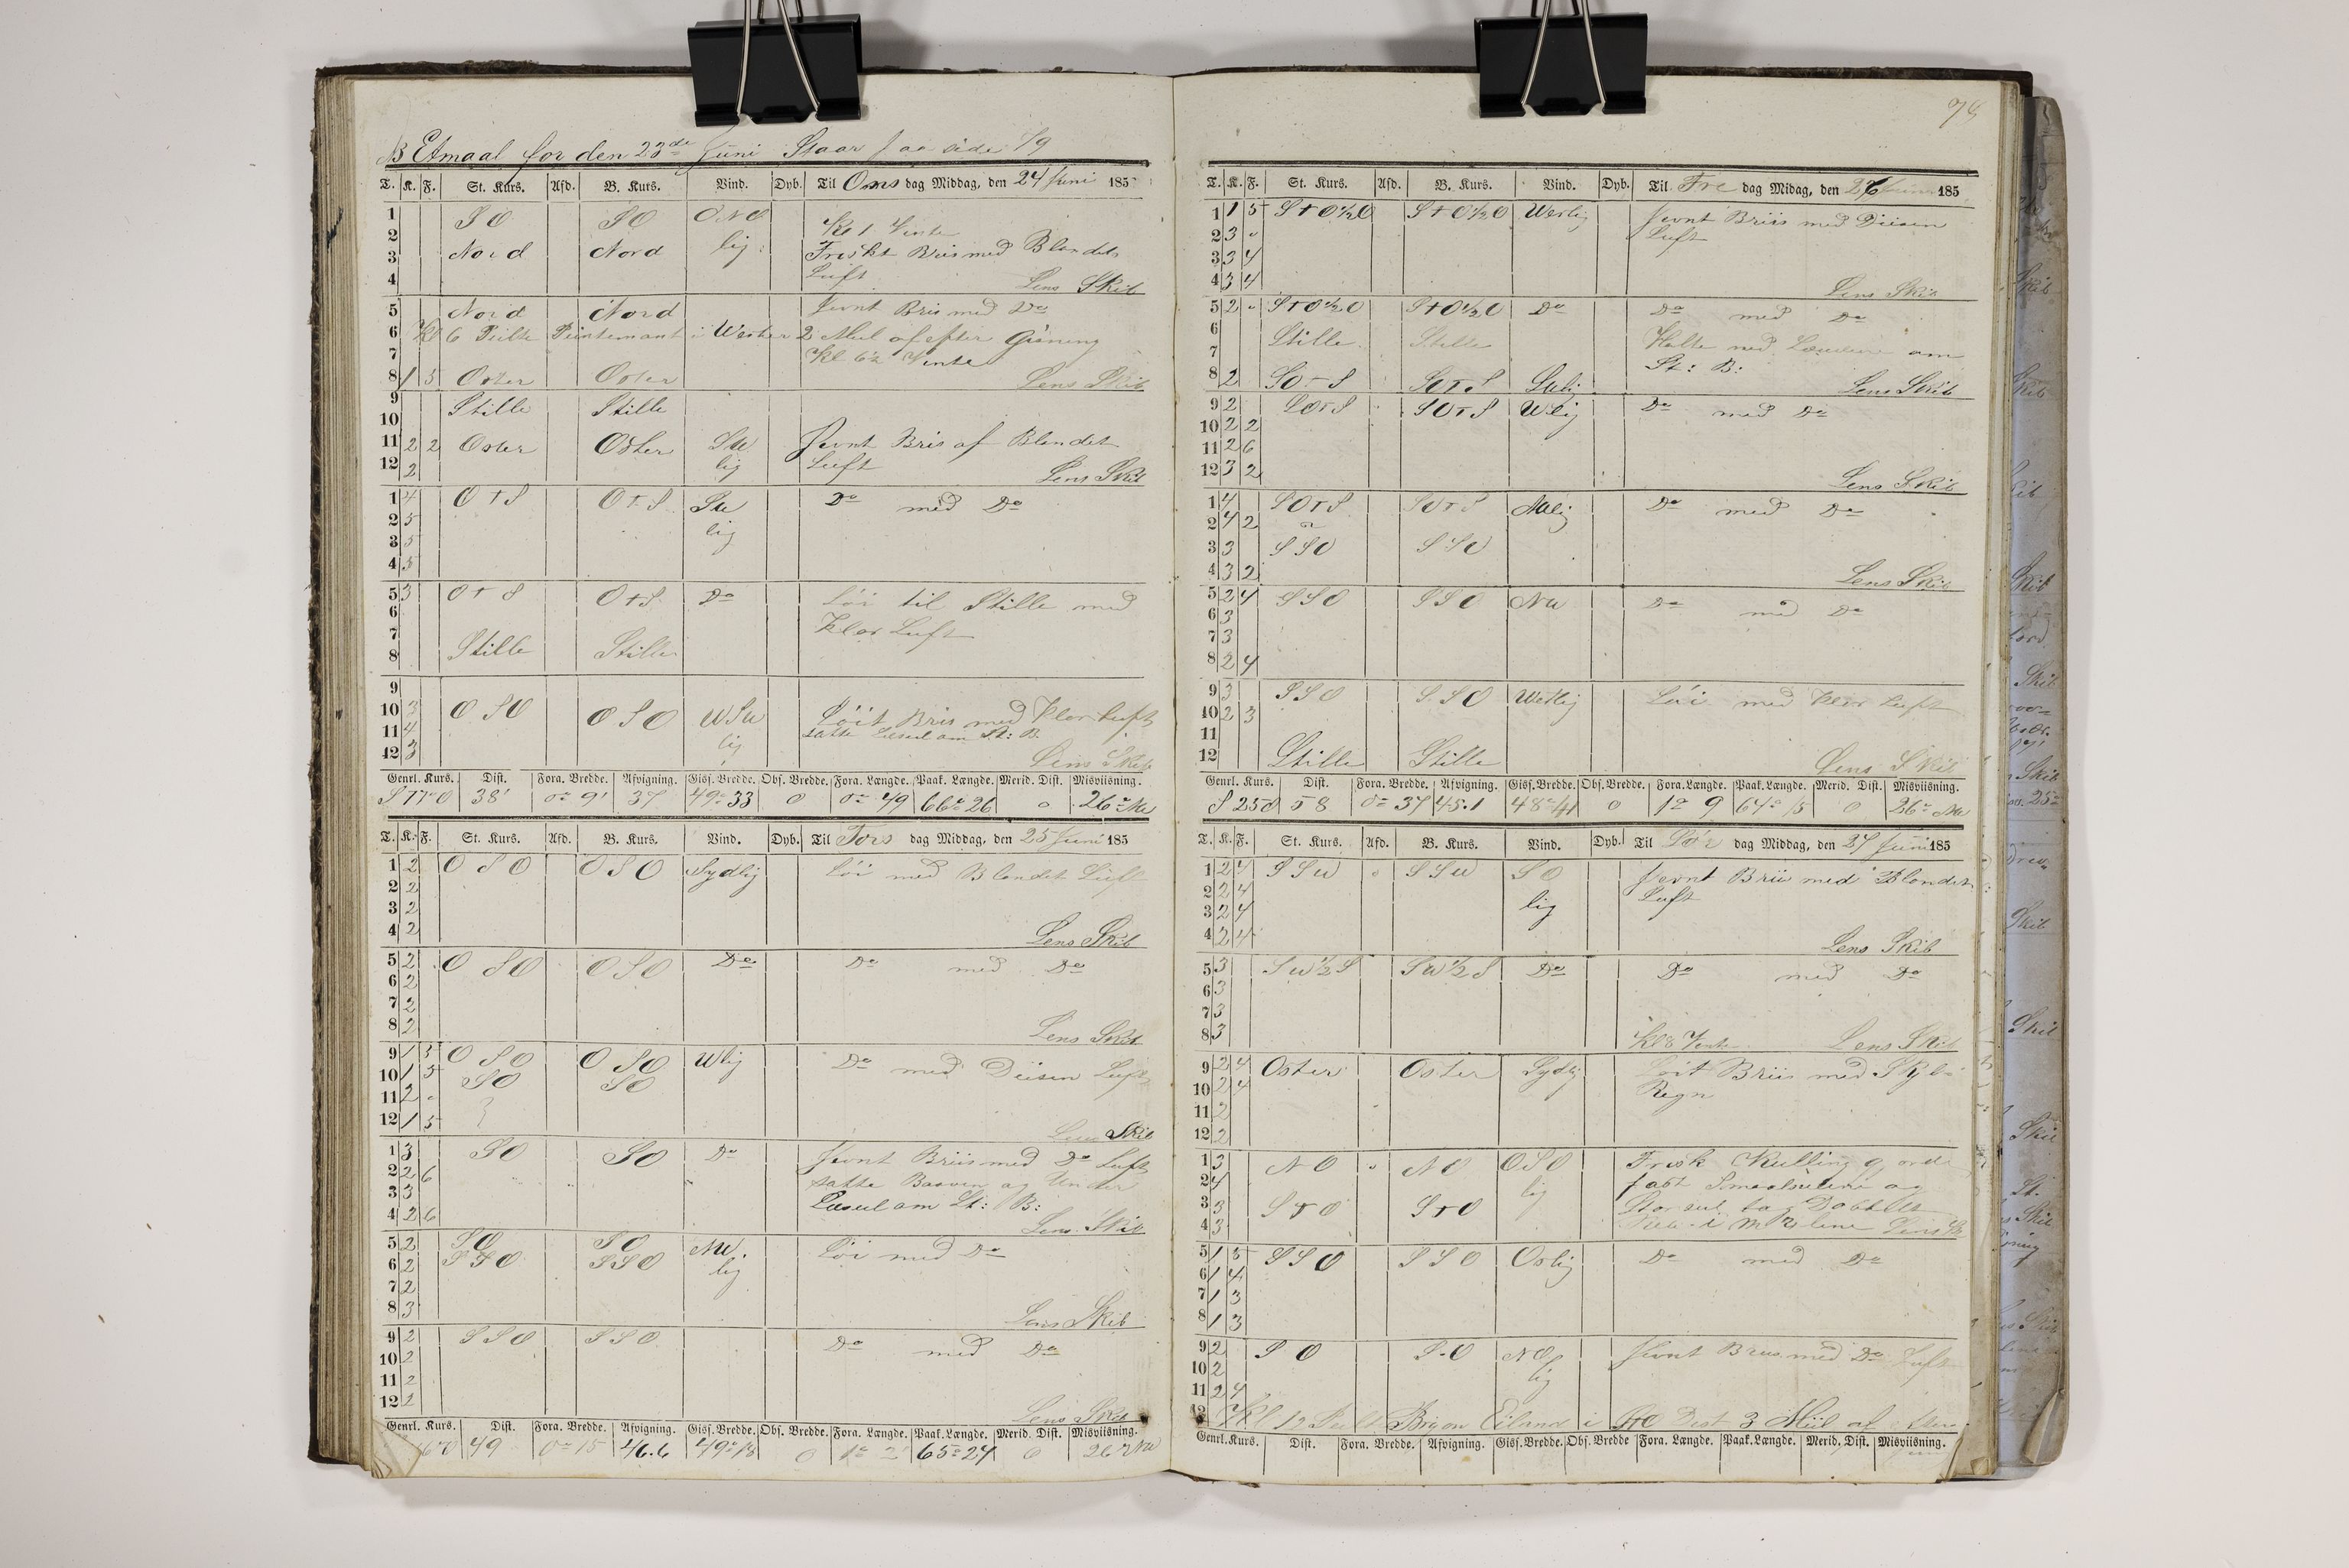 NB Etmaal for den 23de Juni Staar paa side 19
T. K. F. St. Kurs. Afd. B. Kurs. Vind. Dyb. Til Ons dag Middag, den 24 Juni 185
1 SO SO ONO Kl 1 Vente
2 lig Friskt Bris med Blandet
3 Nord Nord Luft
4 Lens Skib
5 Nord Nord Jevnt Bris med Do
6 Kl 6 i Wester 2 Mul af efter Gisning
7 Kl 6½ Vente
8 1 5 Oster Oster Lens Skib
9 Stille Stille
10
11 2 2 Oster Oster SW Jevnt Bris af Blandet
12 2 lig Luft Lens Skib
1 4 O t S O t S SW Do med Do
2 5 lig
3 5
4 5
5 3 O t S O t S Do Löi til Stille med
6 Klar Luft
7 Stille Stille
8
9
10 3 O SO O SO WSW Löit Bris med Klar Luft
11 4 lig satte Læseil om St: B.
12 3 Lens Skib
Genrl. Kurs. Dist. Fora. Bredde. Afvigning. Gisf. Bredde. Obs. Bredde. Fora. Længde. Paak. Længde. Merid. Dist. Misviisning.
S 77° O 38' 0° 9' 37 49° 33 0 0° 49 66° 26 0 26° NW
T. K. F. St. Kurs. Afd. B. Kurs. Vind. Dyb. Til Tors dag Middag, den 25 Juni 185
1 2 O S O O S O Sydlig Löi med Blandet Luft
2 2
3 2
4 2 Lens Skib
5 2 O SO O SO Do Do med Do
6 2
7 2
8 2 Lens Skib
9 1 3 O SO O SO Wlig Do med Diisen Luft
10 1 5 SO SO
11 2 -
12 1 5 Lens Skib
1 3 SO SO Do Jevnt Briis med Do Luft
2 2 6 satte Boven og Under
3 3 Læseil om St: B:
4 2 6 Lens Skib
5 2 SO SO NW. Löi med Do
6 2 SSO SSO lig
7 2
8 3 Lens Skib
9 2 SSO SSO Do med Do
10 2
11 2
12 2 Lens Skib
Genrl. Kurs. Dist. Fora. Bredde. Afvigning. Gisf. Bredde. Obs. Bredde. Fora. Længde. Paak. Længde. Merid. Dist. Misviisning.
49 0° 15 46.6 49° 18 0 1° 2' 65° 24 0 26° NW
T. K. F. St. Kurs. Afd. B. Kurs. Vind. Dyb. Til Fre dag Midag, den 26 Juni 185
1 1 5 S t O ½ O S t O ½ O Westlig Jevnt Briis med Diisen
2 3 - Luft
3 3 4
4 3 4 Lens Skib
5 2 - S t O ½ O S t O ½ O Do Do med Do
6 Stille Stille Halte ned Læseilene om
7 St: B:
8 2 SO t S SO t S Lens Skib
9 2 SO t S SO t S Wlig Do med Do
10 2 2
11 2 6
12 3 2 Lens Skib
1 4 SO t S SO t S NWlig Do med Do
2 4 2
3 3 SSO SSO
4 3 2 Lens Skib
5 2 4 SSO SSO NW Do med Do
6 3
7 3
8 2 4
9 3 SSO SSO Westlig Löi med Klar Luft
10 2 3
11
12 Stille Stille Lens Skib
Genrl. Kurs. Dist. Fora. Bredde. Afvigning. Gisf. Bredde. Obs. Bredde. Fora. Længde. Paak. Længde. Merid. Dist. Misviisning.
S 25 O 58 0° 37 45.1 48° 41 0 1° 9 64° 15 0 26° NW
T. K. F. St. Kurs. Afd. B. Kurs. Vind. Dyb. Til Lör dag Middag, den 27 Juni 185
1 2 4 SSW SSW SO Jevnt Briis med Blandet
2 2 4 Luft
3 2 4 lig
4 2 4 Lens Skib
5 3 SW ½ S SW ½ S Do Do med Do
6 3
7 3
8 3 Kl 8 Vente Lens Skib
9 2 4 Oster Oster Sydlig Löit Briis med Sky
10 2 4 Regn
11 2
12 2
1 3 NO NO OSO Frisk Kulling gjorde
2 4 lig fast Smaaseilene og
3 3 S t O S t O Storseil tog Dobbelt
4 3 Lens Sk
5 1 5 SSO SSO Oslig Do med Do
6 1 4
7 1 3
8 1 3
9 2 SO SO NO Jevnt Briis med Do Luft
10 2 lig
11 2 4
12 Kl 12 Bryon Eiland i Dist 3 Miil af
Genrl. Kurs. Dist. Fora. Bredde. Afvigning. Gisf. Bredde. Obs. Bredde Fora. Længde. Paak. Længde. Merid. Dist. Misviisning.